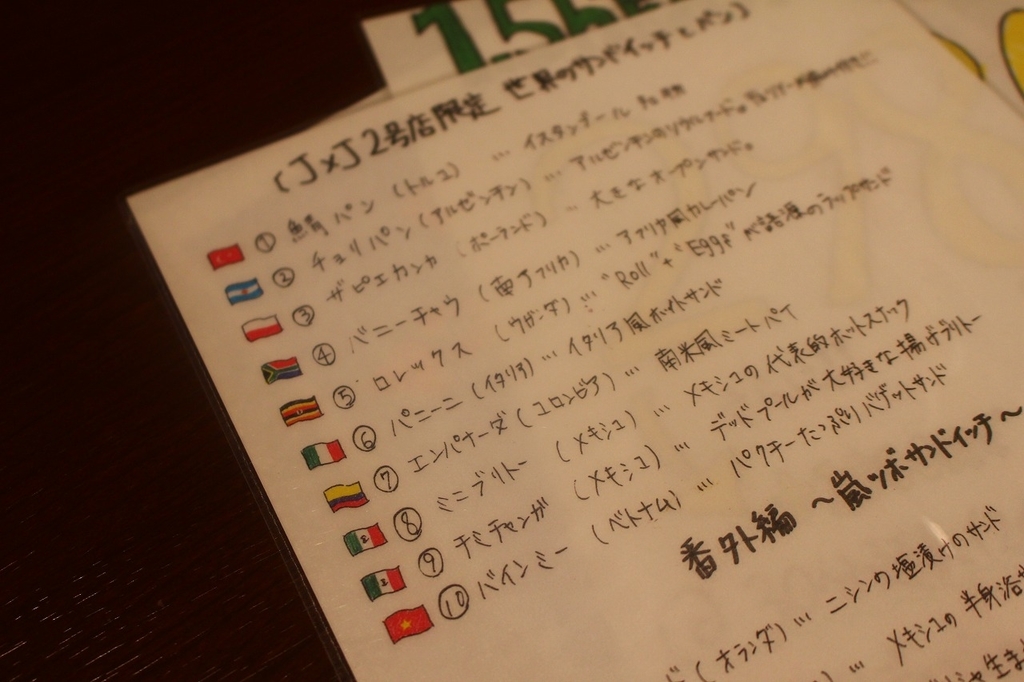 (J×J 2号店限定 世界のサンドイッチとパン)
① 鯖パン (トルコ) … イスタンブール
② チョリパン (アルゼンチン) … アルゼンチンのソウルフード。
③ ザピエカンカ (ポーランド) … 大きなオープンサンド。
④ バニーチャウ (南アフリカ) … アフリカ風カレーパン
⑤ ロレックス (ウガンダ) … "Roll"+"Eggs"が語源のラップサンド
⑥ パニーニ (イタリア) … イタリア風ホットサンド
⑦ エンパナーダ (コロンビア) … 南米風ミートパイ
⑧ ミニブリトー (メキシコ) … メキシコの代表的ホットスナック
⑨ チミチャンガ (メキシコ) … デッドプールが大好きな揚げブリトー
⑩ バインミー (ベトナム) … パクチーたっぷりバゲットサンド
番外編 ～嵐ツボサンドイッチ～
(オランダ) … ニシンの塩漬けのサンド
… メキシコの半身浴